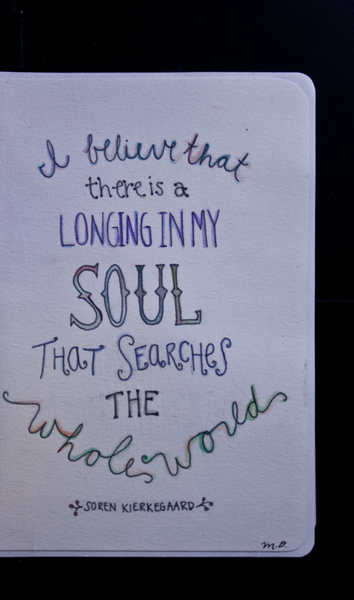 I believe that
there is a
LONGING IN MY
SOUL
THAT SEARCHES
THE
whole world
SOREN KIERKEGAARD
M.B.